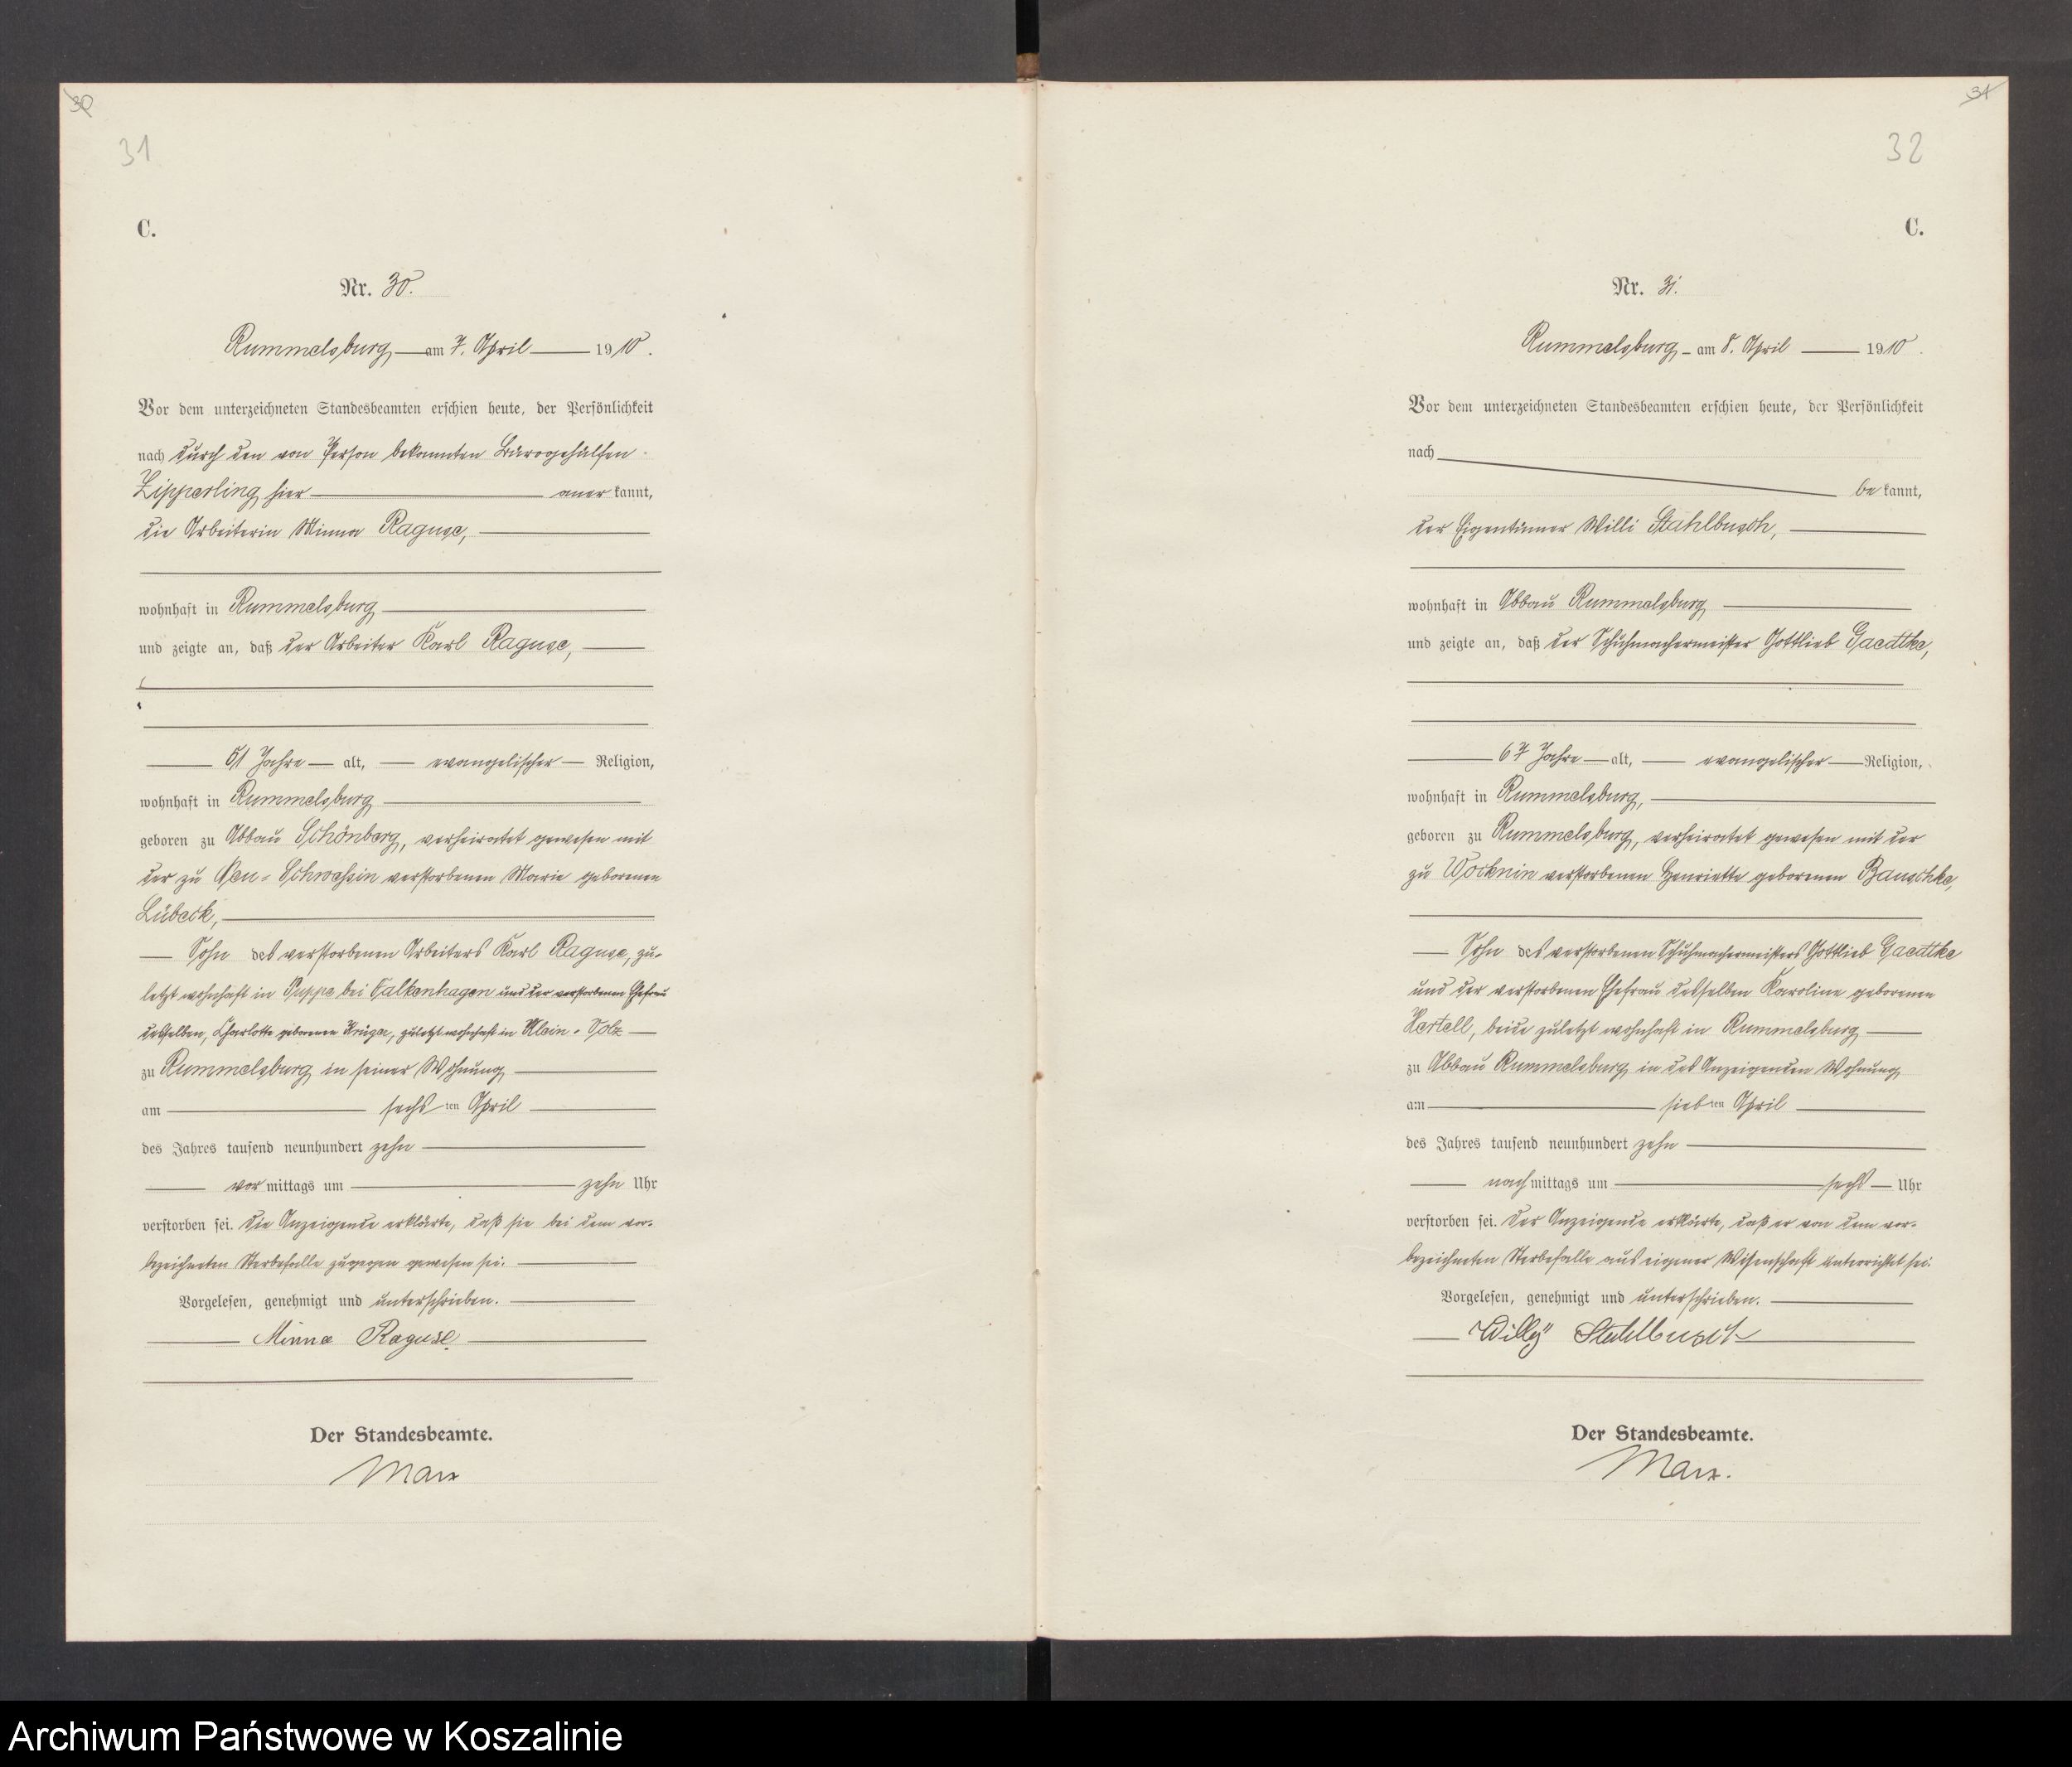 30
31
C.
Nr. 30.
Rummelsburg am 7. April 1910.
Vor dem unterzeichneten Standesbeamten erschien heute, der Persönlichkeit
nach durch den von Person bekannten Bürogehülfen
Zipperling hier anerkannt,
die Arbeiterin Minna Raguse,
wohnhaft in Rummelsburg
und zeigte an, daß der Arbeiter Karl Raguse,
Jahre alt, evangelischer Religion,
wohnhaft in Rummelsburg
geboren zu Abbau Schönberg, verheiratet gewesen mit
der zu Neu-Schwessin verstorbenen Marie geborenen
Lübeck,
Sohn des verstorbenen Arbeiters Karl Raguse, zu-
letzt wohnhaft in Puppe bei Falkenhagen und der verstorbenen Ehefrau
desselben, Charlotte geborenen Krüger, zuletzt wohnhaft in Klein-Volz
zu Rummelsburg in seiner Wohnung
am sechsten April
des Jahres tausend neunhundert zehn
vormittags um zehn Uhr
verstorben sei. Die Anzeigende erklärte, daß sie bei dem vor-
bezeichneten Sterbefalle zugegen gewesen sei.
Vorgelesen, genehmigt und unterschrieben.
Minna Raguse
Der Standesbeamte.
31
32
C.
Nr. 31.
Rummelsburg am 8. April 1910.
Vor dem unterzeichneten Standesbeamten erschien heute, der Persönlichkeit
nach
bekannt,
der Eigentümer Willi Stahlbusch,
wohnhaft in Abbau Rummelsburg
und zeigte an, daß der Schuhmachermeister Gottlieb Gaedtke,
67 Jahre alt, evangelischer Religion,
wohnhaft in Rummelsburg,
geboren zu Rummelsburg, verheiratet gewesen mit der
zu Wocknin verstorbenen Henriette geborenen Bauschke,
Sohn des verstorbenen Schuhmachermeisters Gottlieb Gaedtke
und der verstorbenen Ehefrau desselben Karoline geborenen
Hertell, beide zuletzt wohnhaft in Rummelsburg
zu Abbau Rummelsburg in des Anzeigenden Wohnung
am siebten April
des Jahres tausend neunhundert zehn
nachmittags um sechs Uhr
verstorben sei. Der Anzeigende erklärte, daß er von dem vor-
bezeichneten Sterbefalle aus eigener Wissenschaft unterrichtet sei.
Vorgelesen, genehmigt und unterschrieben.
Willy Stahlbusch
Der Standesbeamte.
Archiwum Państwowe w Koszalinie